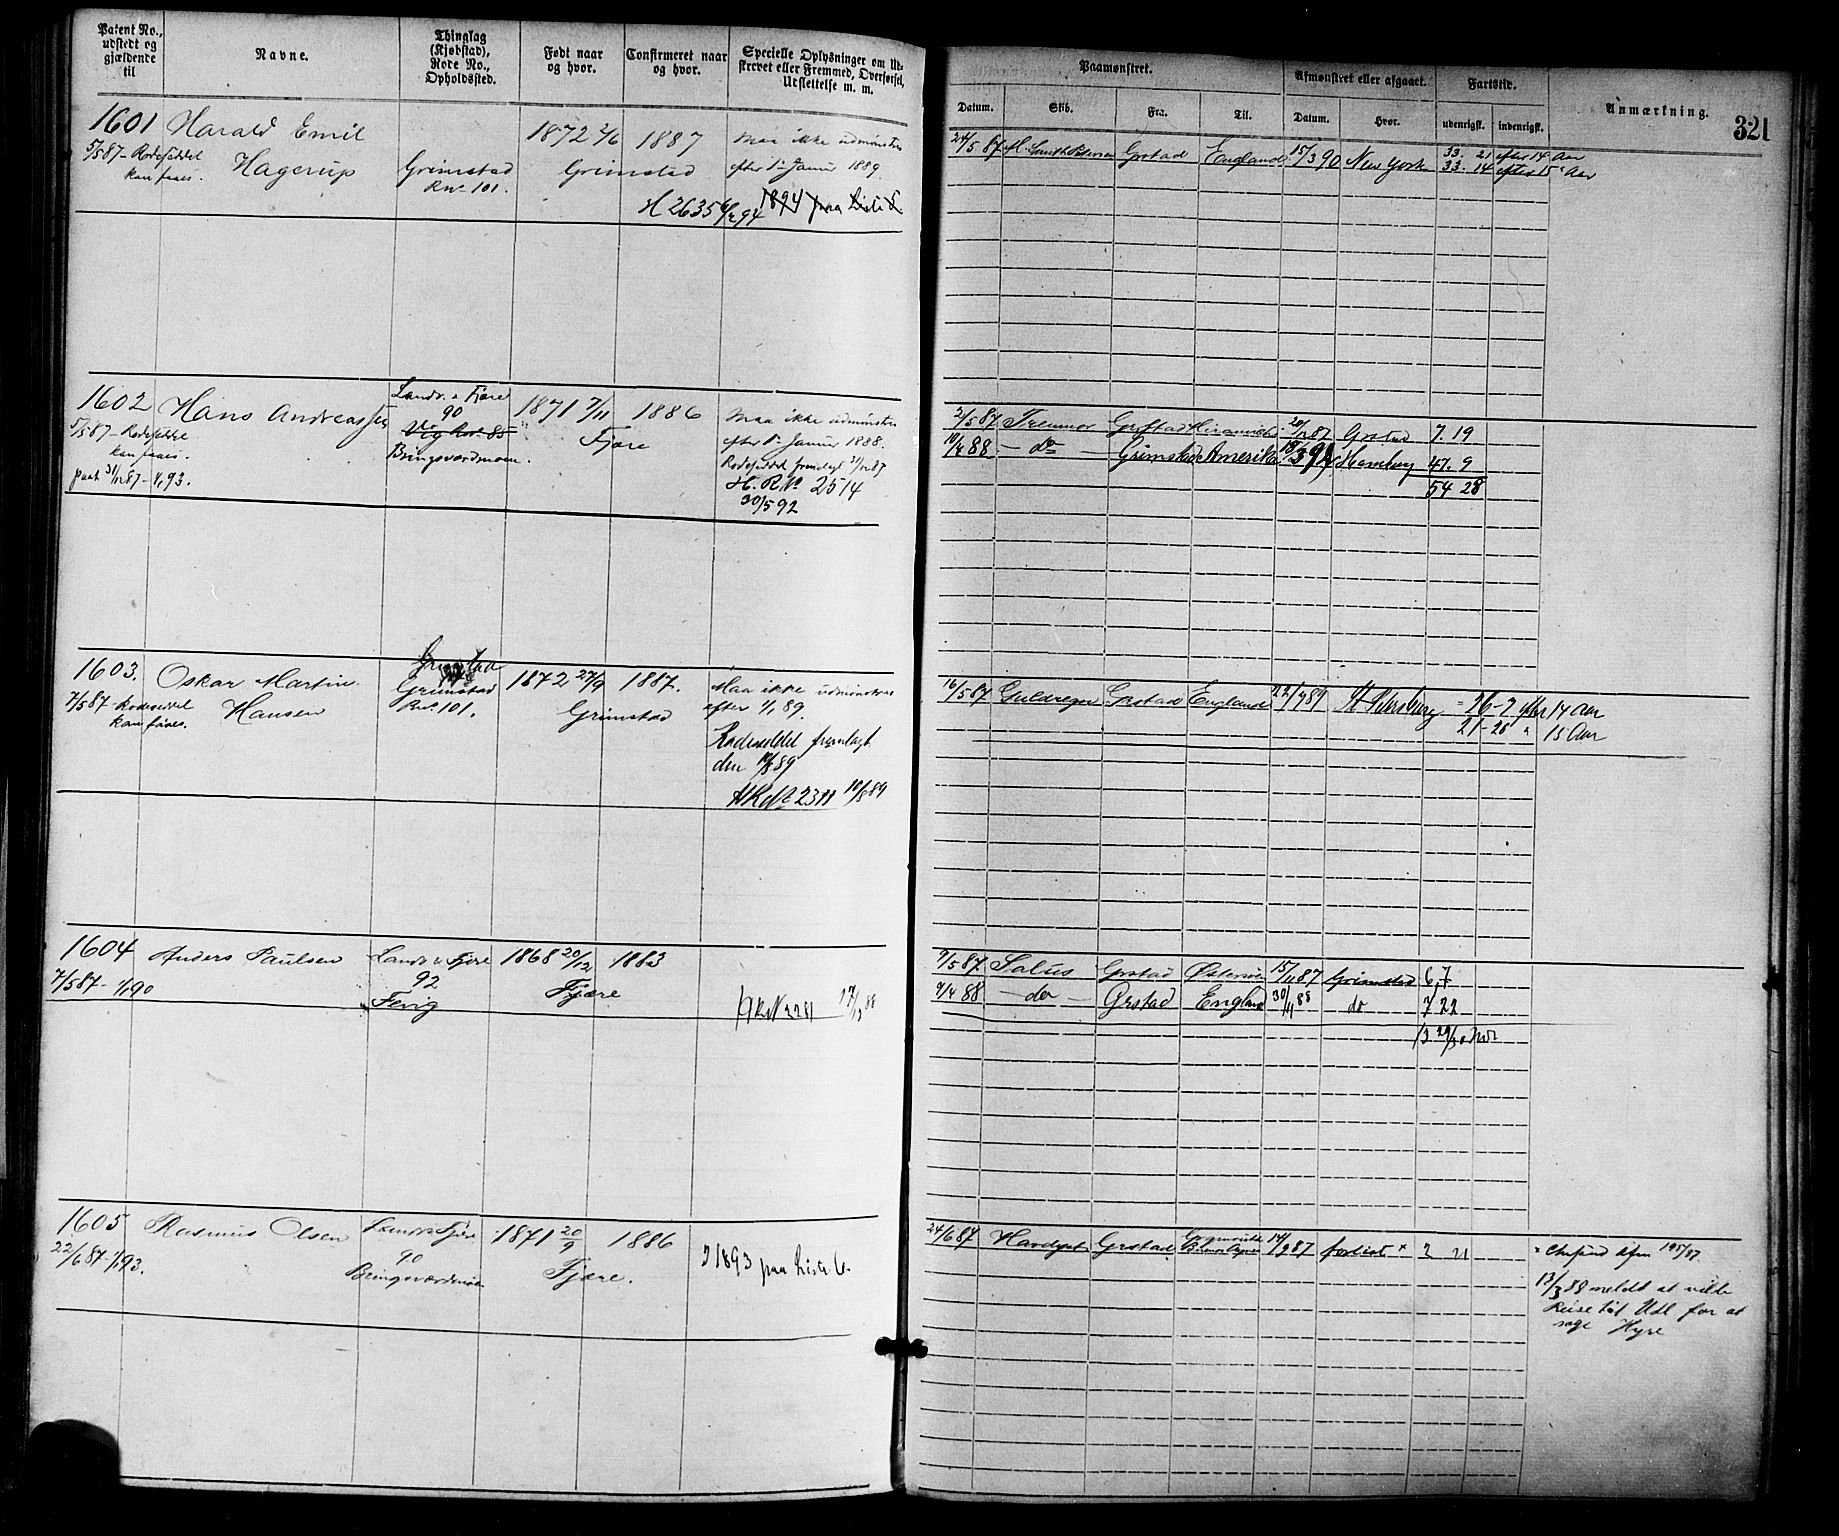 Patent No., udstedt og gjældende til
Navne.
Thinglag (Kjøbstad), Rode No., Opholdssted.
Født naar og hvor.
Confirmeret naar og hvor.
Specielle Oplysninger om Ud-
skrevet eller Fremmed, Overførsel,
Udslettelse m. m.
Paamønstret.
Afmønstret eller afgaaet.
Fartstid.
Anmærkning.
321
Datum.
Skib.
Fra.
Til.
Datum.
Hvor.
udenrigsk.
indenrigsk.
1601 Harald Emil
Hagerup
5/5 87 - Rodeseddel
kan faaes.
Grimstad
R.No. 101.
1872 2/6
Grimstad
1887
Maa ikke udmønstres
efter 1ste Januar 1889
H 2635 1894 paa Liste
24/5 87 Smith Petersen Grstad England 15/3 90 New York 33. 21 efter 14 Aar
33. 14 efter 15 Aar
1602 Hans Andreassen
5/5 87 - Rodeseddel
kan faaes.
31/12 87 - 1/1 93.
Landv. Fjære
90
Vig R.No. 85
Bringsværdmoen.
1871 7/11
Fjære
1886
Maa ikke udmønstres
efter 1ste Januar 1888.
Rodeseddel fremlagt 31/12 87
H. R.No 2514
30/5 92
2/5 87 Grstad 20/12 87 Grstad 7. 19
10/4 88 - do - Grimstad Amerika Hamburg 47. 9
54 28
1603. Oskar Martin
Hansen
7/5 87 - Rodeseddel
kan faaes.
Grimstad
Grimstad
R.No. 101.
1872 27/9
Grimstad
1887.
Maa ikke udmønstres
efter 1/1 89.
Rodeseddel fremlagt
den 10/8 89
HRNo 2311 10/8 89
16/5 87 Guldregn Grstad England 22/7 89 St Petersburg 26-2 efter 14 Aar
21-28 " 15 Aar
1604 Anders Paulsen
7/5 87 - 1/1 90
Landv. Fjære
92
Fevig
1868 20/12
Fjære
1883
HRN 2281 17/12 88
9/5 87 Salus Grstad Østersøen 15/11 87 Grimstad 6,7
9/4 88 - do - Grstad England 30/11 88 do 7 22
1605 Rasmus Olsen
22/6 87 - 1/1 93.
Landv. Fjære
90
Bringsværdmoen
1871 20/9
Fjære.
1886
1893 paa Liste
24/6 87 Grstad 14/9 87 forlist x 2 21
13/3 88 meldt at ville
Reise til Udl for at
søge Hyre